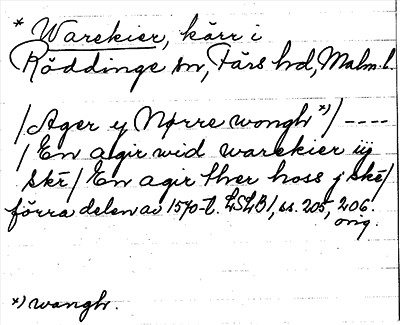 * Warekier, kärr i
Röddinge sn, Färs hd, Malm. l.
/Ager y Nørre wongh *)/ ----
/ En agir wid warekier iij
skē / En agir thver hoss j skē/
förra delen av 1570-t. LSLB1, ss. 205, 206.
orig.
*) wangh.